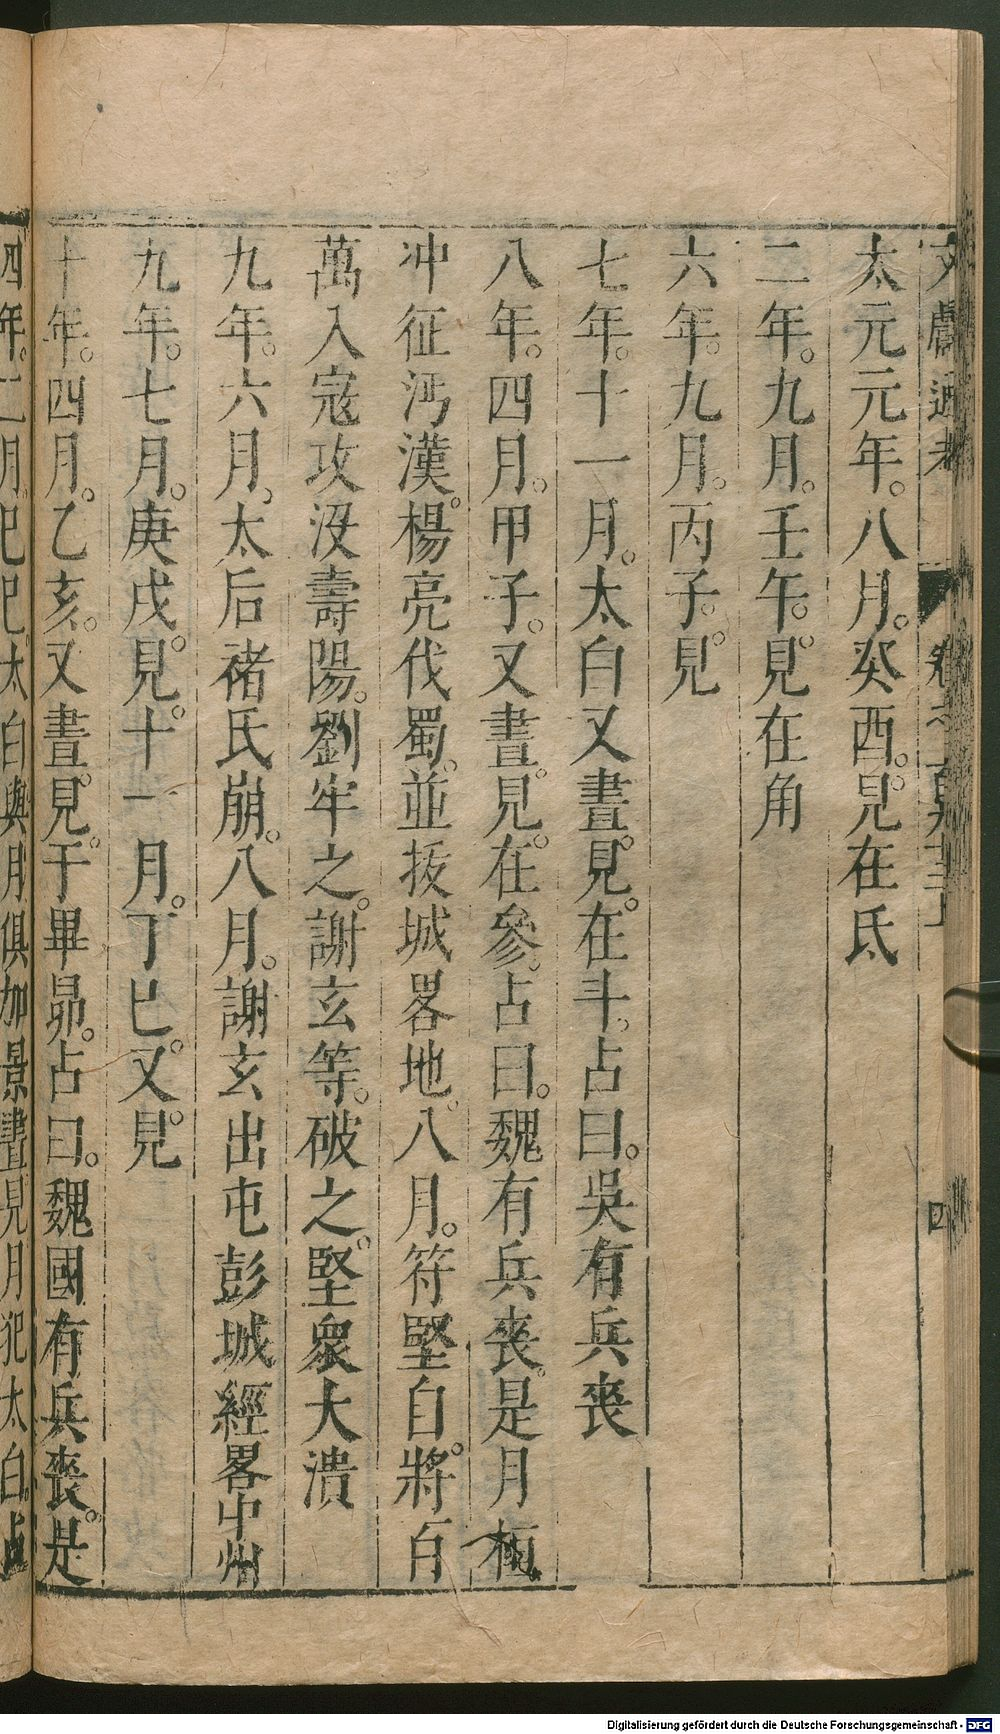 文獻通考 卷二百九十三上 四
太元元年。八月。癸酉。見在氐
二年。九月。壬午。見在角
六年。九月。丙子。見
七年。十一月。太白又晝見。在斗。占曰。吳有兵喪
八年。四月。甲子。又晝見。在參。占曰。魏有兵喪。是月桓
冲征沔漢。楊亮伐蜀。並拔城畧地。八月。符堅自將。百
萬入寇攻沒壽陽。劉牢之。謝玄等。破之。堅衆大潰
九年。六月。太后褚氏崩。八月。謝玄出屯彭城經畧中州
九年。七月。庚戌。見。十一月。丁巳。又見
十年。四月。乙亥。又晝見。于畢昴。占曰。魏國有兵喪。是
四年。二月 太白與月俱加景晝見月犯太白。
Digitalisierung gefördert durch die Deutsche Forschungsgemeinschaft - DFG